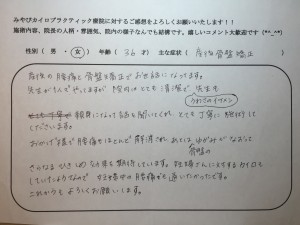 みやびカイロプラクティック療院に対するご感想をよろしくお願いいたします!!
施術内容、院長の人柄・雰囲気、院内の様子なんでも結構です。嬉しいコメント大歓迎です(*^_^*)
性別(男・女) 年齢(36才) 主な症状(産後骨盤矯正)
産後の腰痛と骨盤矯正でお世話になってます。
先生が1人でやっていますが 院内はとても清潔で 先生も
(うわさのイケメン)
親身になって話を聞いてくれ とても丁寧に施術して
くださいます。
おかげ様で腰痛もほとんど解消され あとは ゆがみがなおって
骨盤の
さらなるひきしめ効果を期待しています。妊婦さんに対するカイロも
しているようなので 妊娠中の腰痛でも通いたかったです。
これからもよろしくお願いします。